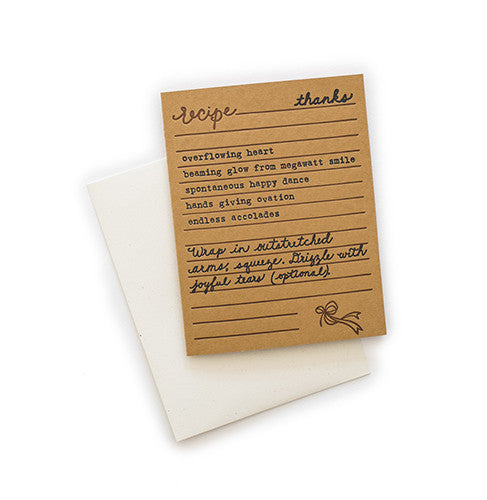 recipe thanks
overflowing heart
beaming glow from megawatt smile
spontaneous happy dance
hands giving ovation
endless accolades
Wrap in outstretched
arms, squeeze. Drizzle with
joyful tears (optional).